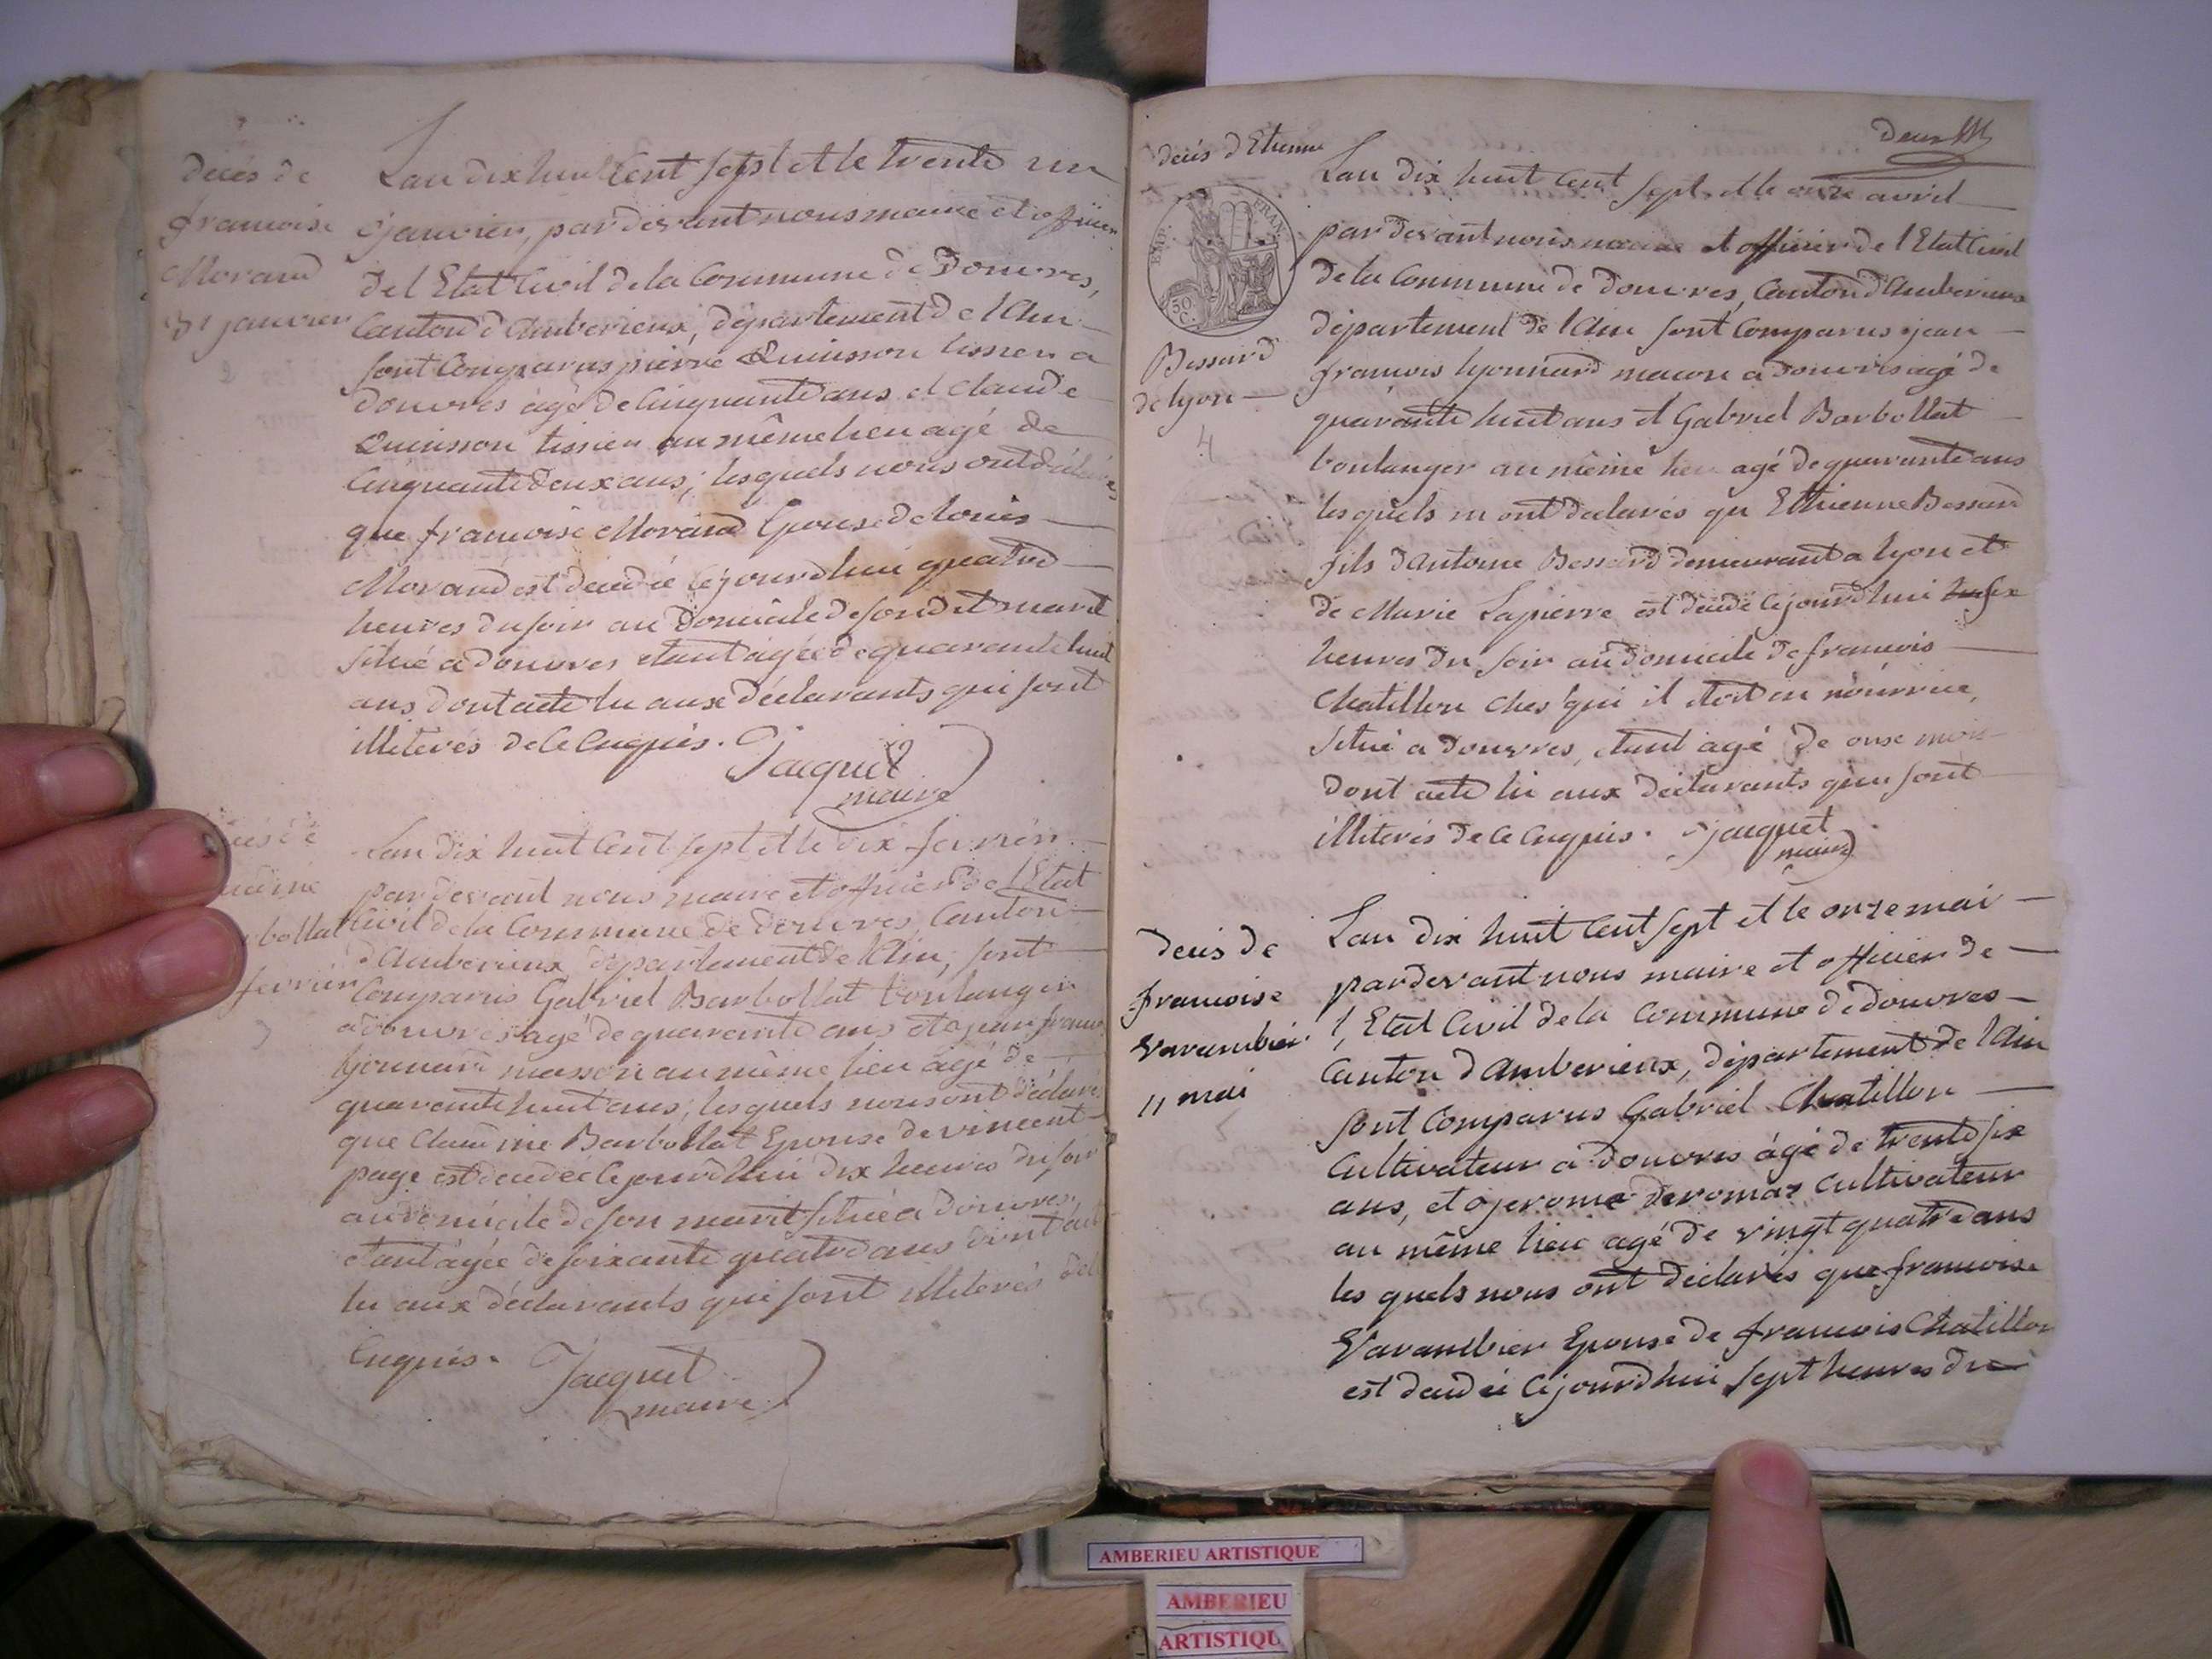 decés de
francoise
Morand
31 janvier
2
Lan dix huit Cent sept et le trente un
janvier, pardevant nous maire et officier
de l Etat Civil de la Commune de Douvres,
Canton d Amberieux, département de l Ain
sont Comparus pierre Quinson tissieu a
douvres agé de Cinquante ans et claude
Quinson tissieu au même lieu agé de
Cinquante deux ans, lesquels nous ont déclarés
que francoise Morand Epouse de louis
Morand est decedée cejourdhui quatre
heures du soir au Domicile de sondit marit
situé a douvres etant agée de quarante huit
ans dont acte lu aux déclarants qui sont
illiterés de ce Enquis. Jacquet
maire
bollat
fevrier
Lan dix huit Cent sept et le dix fevrier
pardevant nous maire et officier de l Etat
Civil de la Commune de douvres, Canton
d Amberieux, département de l Ain, sont
Comparus Gabriel Barbollat boulanger
a douvres agé de quarante ans et jean francois
lyonnard masson au même lieu agé de
quarante huit ans, lesquels nous ont déclaré
que Claudine Barbollat Epouse de vincent
page est decedée cejourdhui dix heures du soir
au domicile de son marit situé a douvres,
etant agée de soixante quatre ans dont acte
lu aux déclarants qui sont illiterés de ce
Enquis. Jacquet
maire
deux
decés d Etienne
EMP. FRAN.
50 C.
Bessard
de lyon
4
Lan dix huit Cent sept et le onze avril
pardevant nous maire et officier de l Etat Civil
de la Commune de douvres, Canton d Amberieux
département de l Ain sont Comparus jean
francois lyonnard macon a Douvres agé de
quarante huit ans et Gabriel Barbollat
boulanger au même lieu agé de quarante ans
lesquels m ont declarés qu Ethienne Bessard
fils d Antoine Bessard demeurant a lyon et
de Marie Lapierre est decédé cejourdhui six
heures du soir au domicile de francois
Chatillon ches qui il etoit en nourrice,
Situé a Douvres, etant agé de onze mois
dont acte lu aux déclarants qui sont
illiterés de ce Enquis. Jacquet
maire
decés de
francoise
Varambier
11 mai
Lan dix huit Cent sept et le onze mai
pardevant nous maire et officier de
l Etat Civil de la Commune de douvres
Canton d Amberieux, département de l Ain
sont Comparus Gabriel Chatillon
Cultivateur a Douvres agé de trente six
ans, et jerome deromas cultivateur
au même lieu agé de vingt quatre ans
les quels nous ont déclarés que francoise
Varambier Epouse de francois Chatillon
est decedée cejourdhui sept heures du
AMBERIEU ARTISTIQUE
AMBERIEU
ARTISTIQU